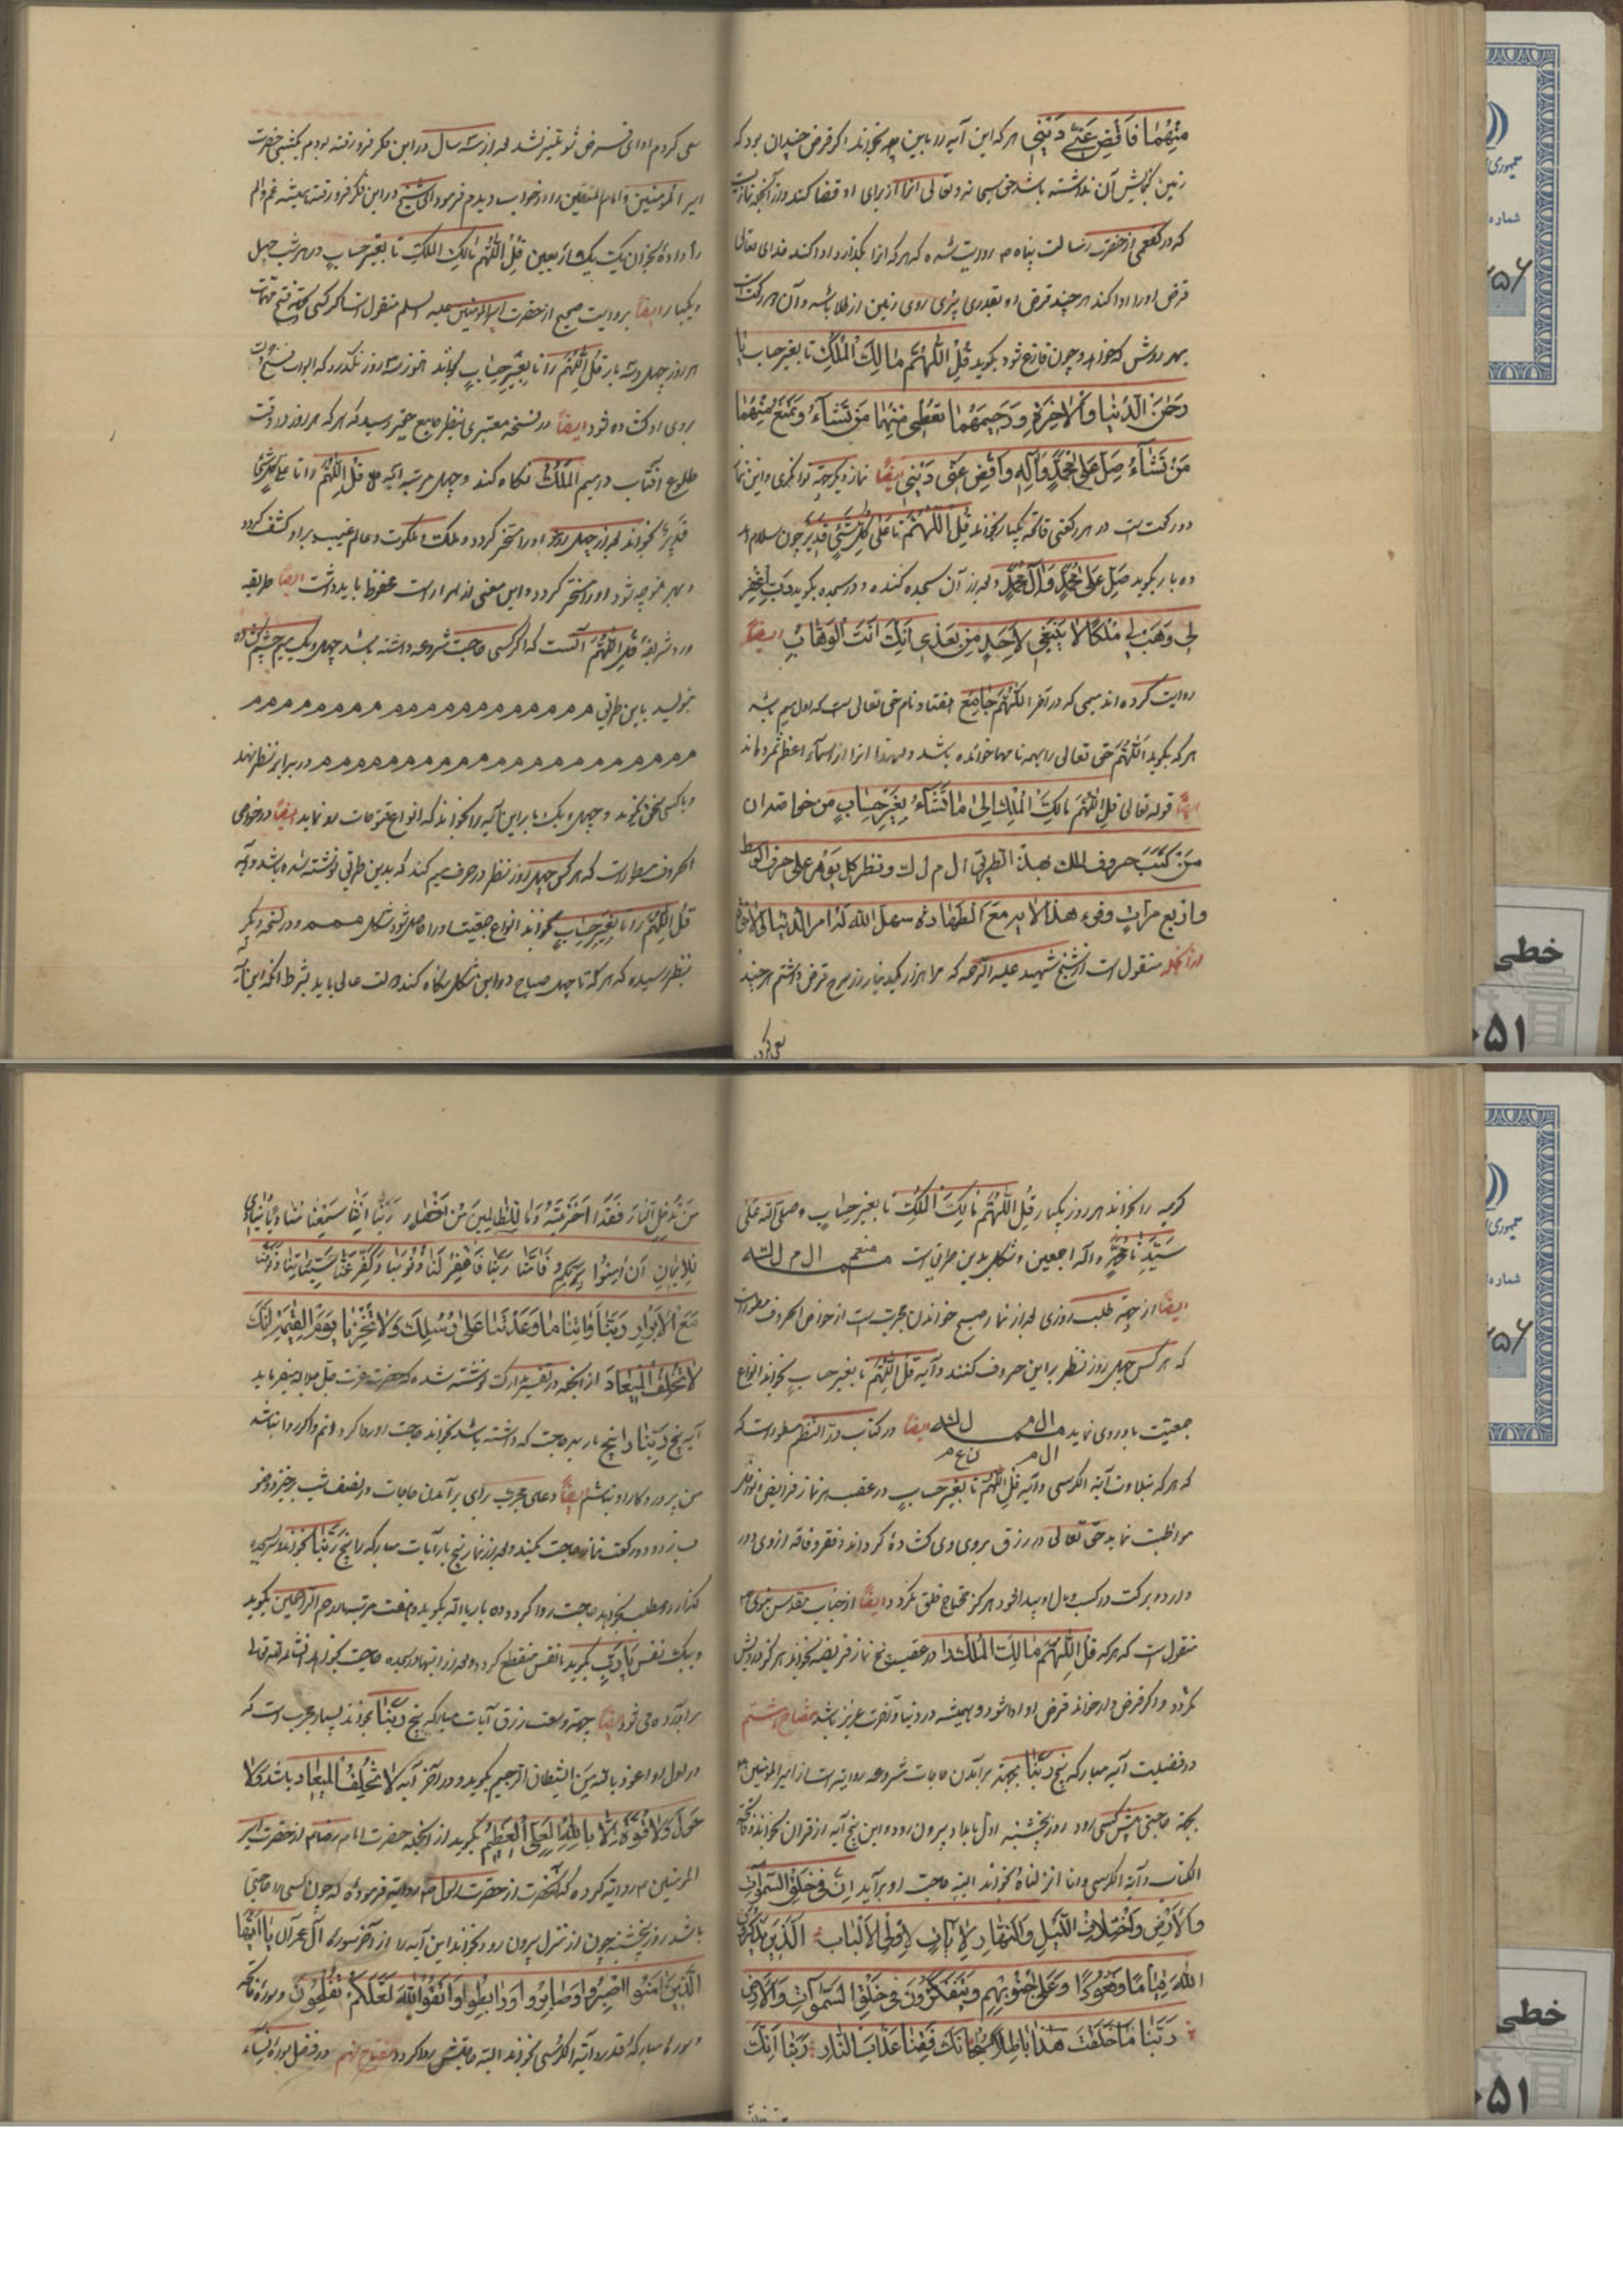 مِنْهُمَا فَاقْضِ عَنّی دَیْنی هر که این آیه را باین بخواند اگر قرض چندان بود که
زمین گنجایش آن نداشته باشد حق سبحانه و تعالی انرا از برای او قضا کند
که در از حضرت رسالت پناه ص روایت شده که هر که انرا بگذارد ادا کند خدای تعالی
قرض او را ادا کند هر چند قرض او بقدری پری روی زمین از طلا باشد و آن دو رکعت است
بهر روش که خواهد و چون فارغ شود بگوید قُلِ اللّٰهُمَّ مَالِكَ الْمُلْكِ تا بغیر حساب یا
رَحْمٰنَ الدُّنْیا وَالْاخِرَةِ وَرَحیمَهُمَا تُعْطی مِنْهُمَا مَنْ تَشَآءُ وَتَمْنَعُ مِنْهُمَا
مَنْ تَشَآءُ صَلِّ عَلی مُحَمَّدٍ وَآلِهِ وَاقْضِ عَنّی دَیْنی ایضًا نماز دیگر جهة توانگری و این نماز
دو رکعت است در هر رکعتی فاتحه یکبار بخواند قُلِ اللّٰهُمَّ تا عَلی كُلِّ شَیْءٍ قَدیرٌ چون سلام دهد
ده بار بگوید صَلِّ عَلی مُحَمَّدٍ وَآلِ مُحَمَّدٍ و بعد از آن سجده کند و در سجده بگوید رَبِّ اغْفِرْ
لی وَهَبْ لی مُلْكًا لا یَنْبَغی لِاَحَدٍ مِنْ بَعْدی اِنَّكَ اَنْتَ الْوَهَّابُ ایضًا
روایت کرده اند میمی که در آخر اللّٰهُمَّ جامع هفتاد نام حق تعالی است که اول میم باشد
هر که بگوید اَللّٰهُمَّ حق تعالی را بهمه نامها خوانده باشد و لهذا انرا از اسماء اعظم شمرده اند
ایضًا قوله تعالی قُلِ اللّٰهُمَّ مَالِكَ الْمُلْكِ الی مَا تَشَآءُ بِغَیْرِ حِسَابٍ من خواصه ان
مَنْ كَتَبَ حروف الملك بهذا الطریق ا ل م ل ك و نظر كل یوم علی حرف الوسط
و اربع مرات وقرء هذا الایه مَعَ الطهارة سهل الله له امر الدنیا والاخرة
از آنجمله منقول است از شیخ شهید علیه الرحمه که هزار دینار زر سرخ قرض داشتم هر چند
سعی کردم
سعی کردم ادای قرض شود میسر نشد بعد از سه سال در این فکر فرو رفته بودم یکشبی حضرت
امیر المؤمنین و امام المتقین را در خواب دیدم فرمود ای شیخ در این فکر فرو رفته همیشه غم و الم
را داده بخوان یک یک اربعین قُلِ اللّٰهُمَّ مَالِكَ الْمُلْكِ تا بِغَیْرِ حِسَابٍ در هر شب چهل
و یکبار ایضًا بروایت صحیح از حضرت امیر المؤمنین علیه السلم منقول است اگر کسی بجهة فتح مهمات
هر روز چهل و سه بار قُلِ اللّٰهُمَّ را تا بِغَیْرِ حِسَابٍ بخواند هنوز سه روز نگذرد که ابواب فتح
بروی او گشاده شود ایضًا در نسخه معتبری بنظر جامع حقیر رسید که هر که هر روز در وقت
طلوع افتاب در میم المُلك نگاه کند و چهل مرتبه آیه قُلِ اللّٰهُمَّ را تا عَلی كُلِّ شَیْءٍ
قَدیرٌ بخواند بعد از چهل روز او را مسخر گردد و ملک و ملکوت و عالم غیب بر او کشف گردد
و بهر متوجه شود او را مسخر گردد و این معنی از اسرار است محفوظ باید داشت ایضًا طریقه
ورد شریفه قُلِ اللّٰهُمَّ آنست که اگر کسی حاجت مشروعه داشته باشد چهل و یک میم چشم گشاده
بنویسد باین طریق م م م م م م م م م م م م م م م م م م م م
م م م م م م م م م م م م م م م م م م م م م در برابر نظر نهد
و با کسی سخن نگوید و چهل و یک بار این آیه را بخواند که انواع فتوحات رو نماید ایضًا در خواص
الحروف مسطور است که هر کس چهل روز نظر در حرف میم کند که بدین طریق نوشته شده باشد و آیه
قُلِ اللّٰهُمَّ را تا بِغَیْرِ حِسَابٍ بخواند انواع جمعیت او را حاصل شود شکل م‍م‍م‍م و در نسخه دیگر
بنظر رسیده که هر که تا چهل صباح در این شکل نگاه کند دولت عالی یابد بشرط انکه این آیه
کریمه را بخواند هر روز یکبار قُلِ اللّٰهُمَّ مَالِكَ الْمُلْكِ تا بغیر حِسَابٍ و صلی الله عَلی
سَیِّدِنا مُحَمَّدٍ و اله اجمعین و شکل بدین طریق است ا ل م ل ل ه
ایضًا از جهة طلب روزی بعد از نماز صبح خواندن مجرب است از خواص الحروف مسطور است
که هر کس چهل روز نظر بر این حروف کند و آیه قُلِ اللّٰهُمَّ تا بغیر حساب بخواند انواع
جمعیت باو روی نماید ا ل م ل ك ایضًا در کتاب در النظم مسطور است که
که هر که بتلاوت آیة الکرسی و آیه قُلِ اللّٰهُمَّ تا بغیر حساب در عقب هر نماز فرایض و نوافل
مواظبت نماید حق تعالی در رزق بروی وی گشاده گرداند و فقر و فاقه از وی دور
دارد و برکت در کسب و مال او پیدا شود هرگز محتاج خلق نگردد ایضًا از جناب مقدس نبوی ص
منقول است که هر که قُلِ اللّٰهُمَّ مَالِكَ الْمُلْكِ را در عقب پنج نماز فریضه بخواند هرگز درویش
نگردد و اگر قرض دار خواند قرض او ادا شود و همیشه در دنیا و آخرت عزیز باشد مفتاح هشتم
در فضیلت آیه مبارکه پنج رَبَّنا بجهة برآمدن حاجات مشروعه روایتست از امیر المؤمنین ع
بجهة حاجتی پیش کسی رود روز پنجشنبه اول بامداد بیرون رود و این پنج آیه از قران بخواند و فاتحة
الکتاب و آیة الکرسی و انا انزلناه بخواند البته حاجت او برآید اِنَّ فی خَلْقِ السَّمٰوَاتِ
وَالْاَرْضِ وَاخْتِلافِ اللَّیْلِ وَالنَّهَارِ لَاٰیَاتٍ لِاُولِی الْاَلْبَابِ الَّذینَ یَذْكُرُونَ
اللّٰهَ قِیَامًا وَقُعُودًا وَعَلی جُنُوبِهِمْ وَیَتَفَكَّرُونَ فی خَلْقِ السَّمٰوَاتِ وَالْاَرْضِ
رَبَّنَا مَا خَلَقْتَ هٰذَا بَاطِلًا سُبْحَانَكَ فَقِنَا عَذَابَ النَّارِ رَبَّنَا اِنَّكَ
مَنْ تُدْخِلِ النَّارَ فَقَدْ اَخْزَیْتَهُ وَمَا لِلظَّالِمینَ مِنْ اَنْصَارٍ رَبَّنَا اِنَّنَا سَمِعْنَا مُنَادِیًا یُنَادی
لِلْایمَانِ اَنْ اٰمِنُوا بِرَبِّكُمْ فَاٰمَنَّا رَبَّنَا فَاغْفِرْ لَنَا ذُنُوبَنَا وَكَفِّرْ عَنَّا سَیِّئَاتِنَا وَتَوَفَّنَا
مَعَ الْاَبْرَارِ رَبَّنَا وَاٰتِنَا مَا وَعَدْتَنَا عَلی رُسُلِكَ وَلَا تُخْزِنَا یَوْمَ الْقِیٰمَةِ اِنَّكَ
لَا تُخْلِفُ الْمیعَادَ از انجمله در تفسیر مبارک نوشته شده که حضرت عزت جل جلاله میفرماید
آیه پنج رَبَّنَا را پنج بار بهر حاجت که داشته باشد بخواند حاجت او روا گردانم و اگر روا نباشد
من پروردگار او نباشم ایضًا دعای مجرب برای برآمدن حاجات در نصف شب برخیزد وضو
بسازد و دو رکعت نماز حاجت بکند و بعد از نماز پنج بار آیات مبارکه را پنج رَبَّنَا بخواند و سر بسجده
گذارد و مطلب بخواهد حاجت روا گردد و ده بار یا الله بگوید و هفت مرتبه یا ارحم الراحمین بگوید
و بیک نفس یا رَبِّ بگوید تا نفس منقطع گردد و بعد از اینها در سجده حاجت بخواهد انشاء الله تعالی
برآورده می شود ایضًا جهة وسعت رزق آیات مبارکه پنج رَبَّنَا بخواند بسیار مجرب است که
در اول او اعوذ بالله من الشیطان الرجیم بگوید و در آخر آیه لَا تُخْلِفُ الْمیعَادَ باشد لا
حَوْلَ وَلَا قُوَّةَ اِلَّا بِاللّٰهِ الْعَلِیِّ الْعَظیمِ بگوید از انجمله حضرت امام رضا ع از حضرت امیر
المؤمنین ع روایة کرده که آنحضرت از حضرت رسول ص روایة فرموده که چون کسی را حاجتی
باشد روز پنجشنبه چون از منزل بیرون رود بخواند این آیه را از آخر سوره آل عمران یَا اَیُّهَا
الَّذینَ اٰمَنُوا اصْبِرُوا وَصَابِرُوا وَرَابِطُوا وَاتَّقُوا اللّٰهَ لَعَلَّكُمْ تُفْلِحُونَ و سوره فاتحه
و سوره مبارکه قدر و آیة الکرسی بخواند البته حاجتش روا گردد مفتاح نهم در فضل سوره نساء
خطی
۵۱
جمهوری
شماره